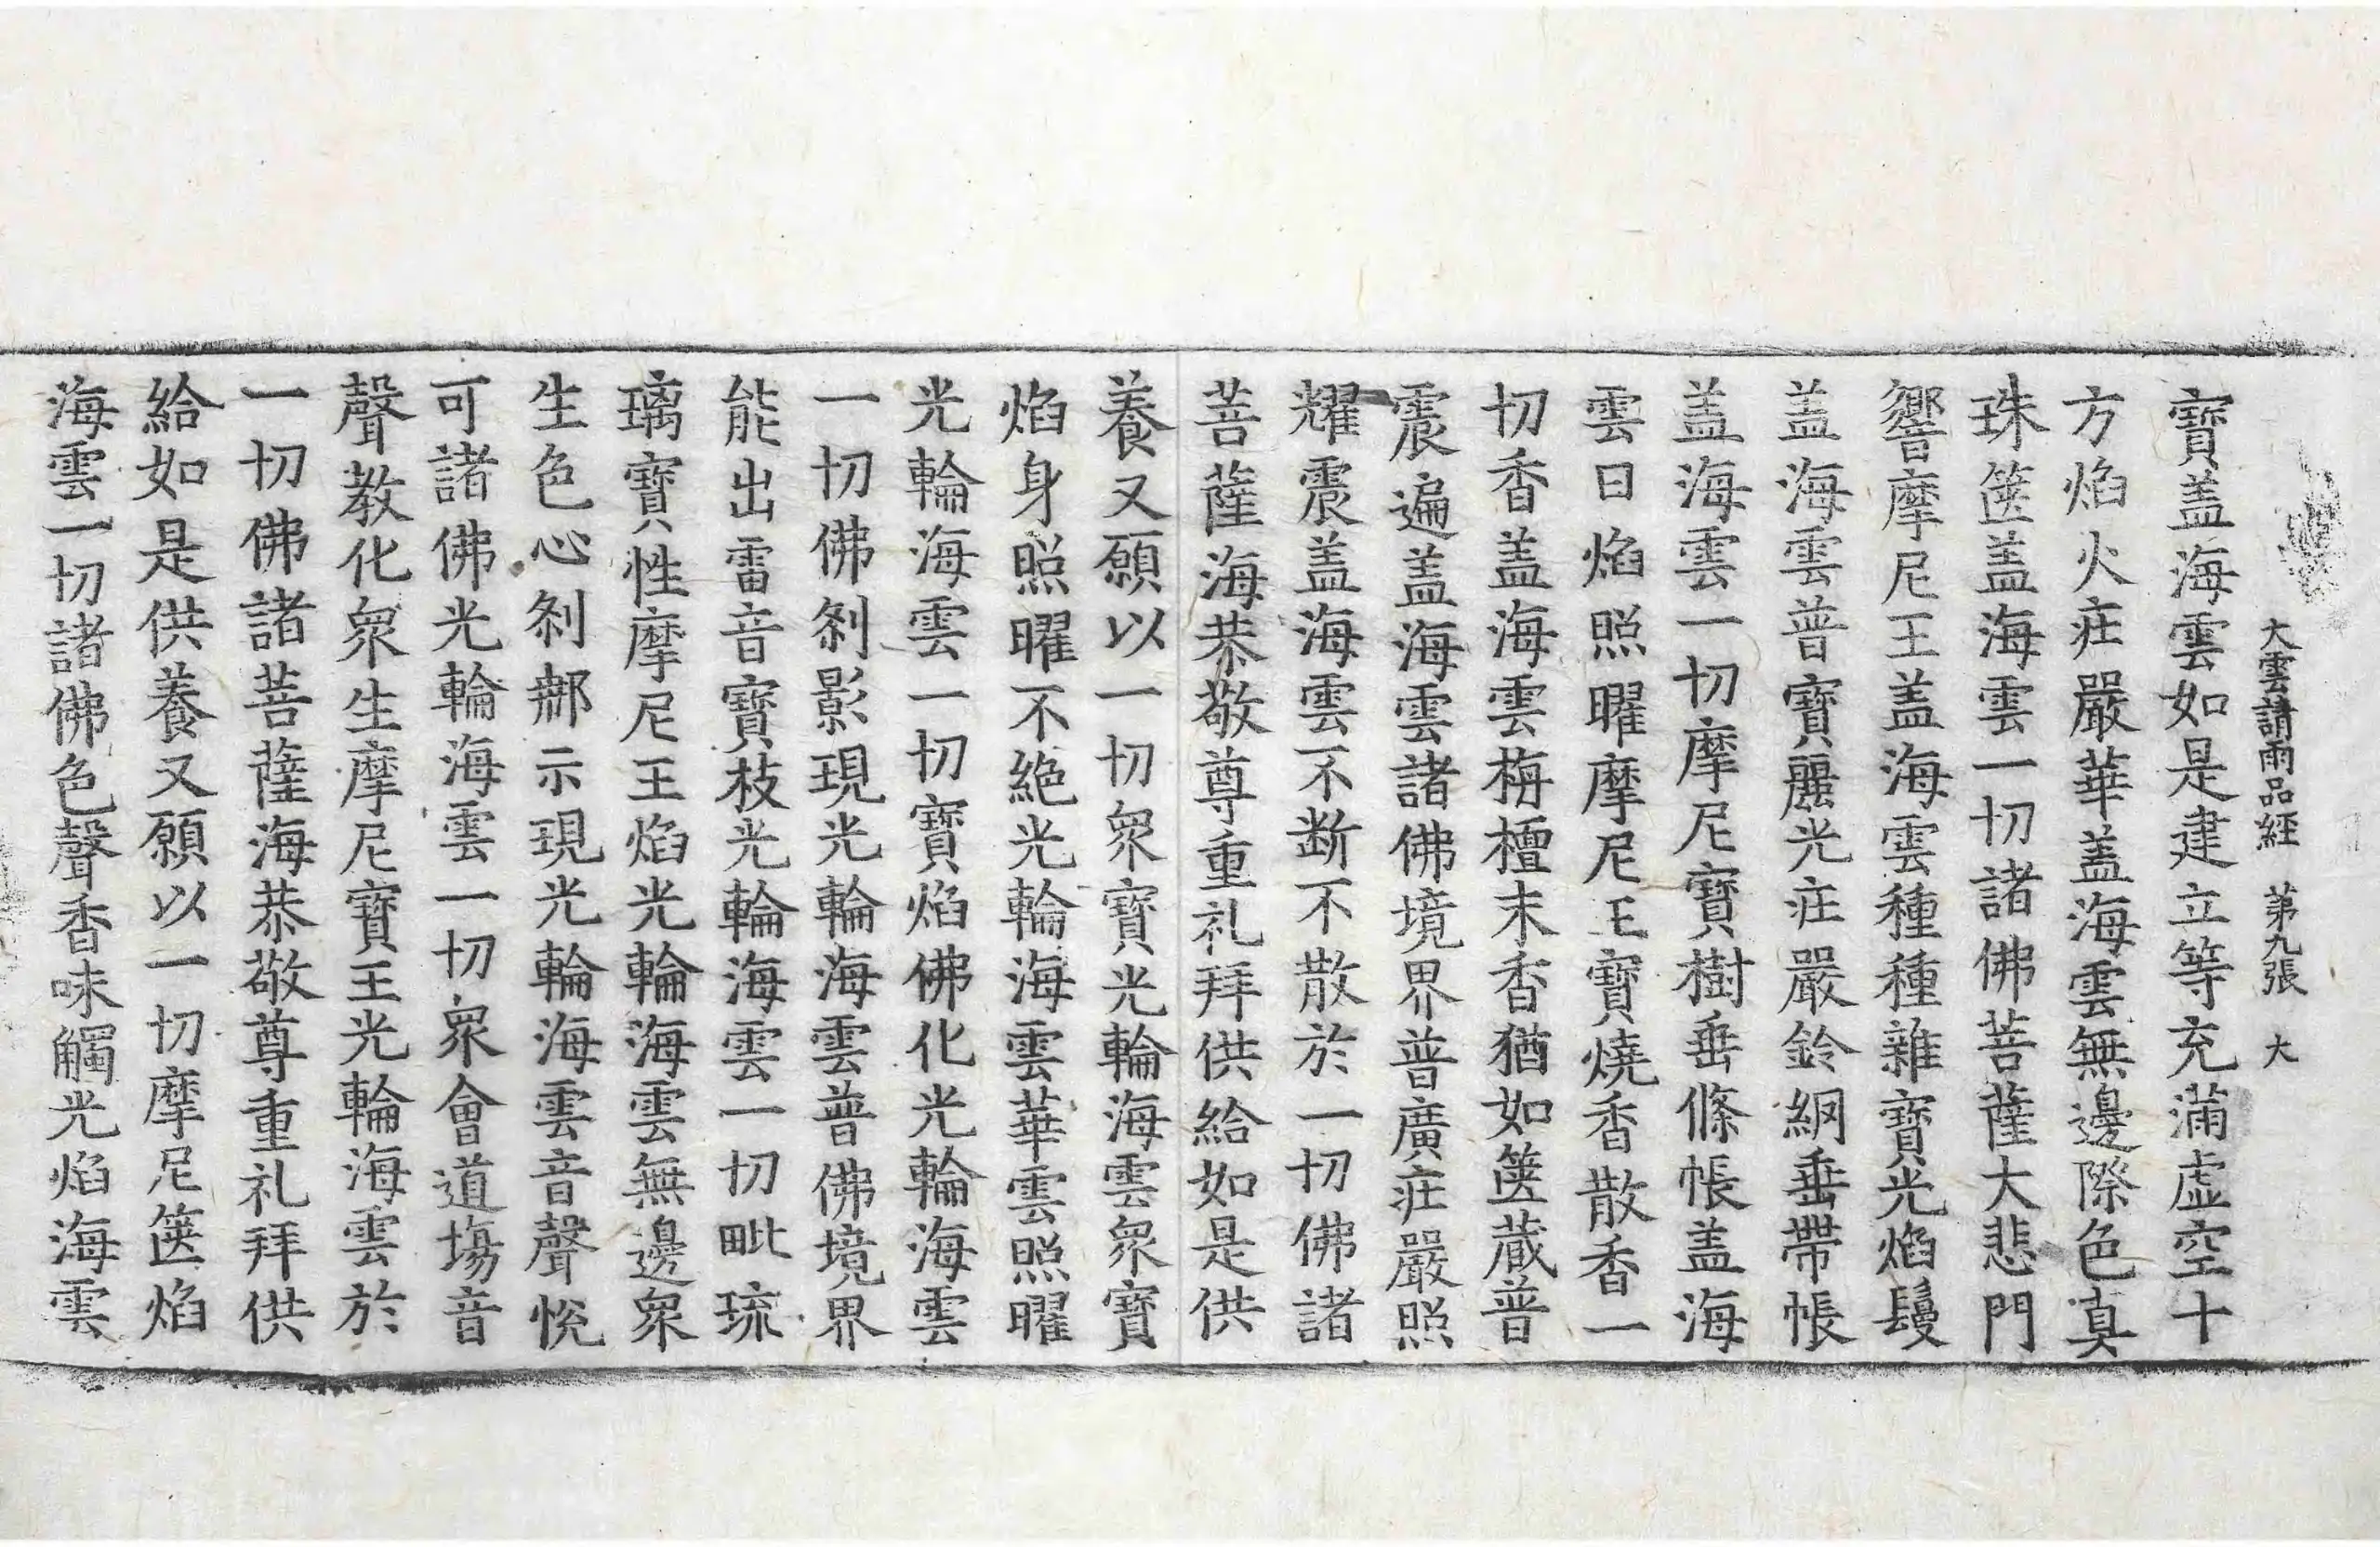 大雲請雨品經 第九張 大
寶盖海雲如是建立等充滿虛空十
方焰火庄嚴華盖海雲無邊際色真
珠篋盖海雲一切諸佛菩薩大悲門
響摩尼王盖海雲種種雜寶光焰鬘
盖海雲普寶麗光庄嚴鈴網垂帶帳
盖海雲一切摩尼寶樹垂條帳盖海
雲日焰照曜摩尼王寶燒香散香一
切香盖海雲栴檀末香猶如篋蔵普
震遍盖海雲諸佛境界普廣庄嚴照
耀震盖海雲不断不散於一切佛諸
菩薩海恭敬尊重礼拜供給如是供
養又願以一切衆寶光輪海雲衆寶
焰身照曜不絶光輪海雲華雲照曜
光輪海雲一切寶焰佛化光輪海雲
一切佛刹影現光輪海雲普佛境界
能出雷音寶枝光輪海雲一切毗琉
璃寶性摩尼王焰光輪海雲無邊衆
生色心刹那示現光輪海雲音聲悅
可諸佛光輪海雲一切衆會道場音
聲教化衆生摩尼寶王光輪海雲於
一切佛諸菩薩海恭敬尊重礼拜供
給如是供養又願以一切摩尼篋焰
海雲一切諸佛色聲香味觸光焰海雲